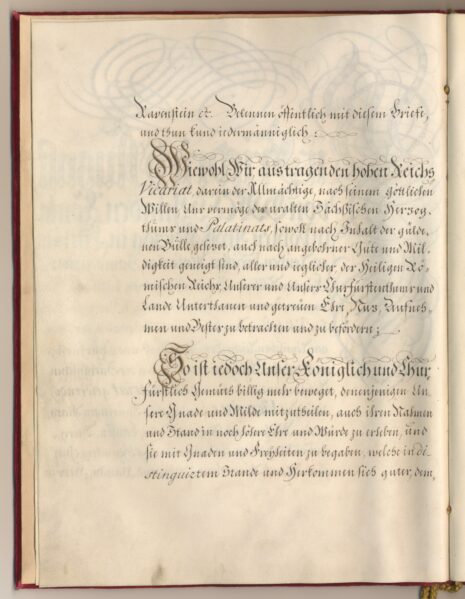 Ravenstein etc. Bekennen öffentlich mit diesem Briefe,
und thun kund iedermänniglich:
Wiewohl Wir aus tragenden hohen Reichs
Vicariat, darein der Allmächtige, nach seinem göttlichen
Willen Uns vermöge des uralten Sächsischen Herzog-
thums und Palatinats, sowohl nach Inhalt der gülde-
nen Bulle gesezet, auch nach angebohrner Güte und Mil-
digkeit geneigt sind, aller und ieglicher, der Heiligen Rö-
mischen Reichs, Unserer und Unsers Churfürstenthums und
Lande Unterthanen und getreuen Ehre, Nuz, Aufneh-
men und Bestes zu betrachten und zu befördern;
So ist iedoch Unser Königlich und Chur-
fürstlich Gemüth billig mehr beweget, denenjenigen Un-
sere Gnade und Milde mitzutheilen, auch ihren Nahmen
und Stand in noch höhere Ehre und Würde zu erheben, und
sie mit Gnaden und Freyheiten zu begaben, welche in di-
stinguirtem Stande und Herkommen sich guter, dem